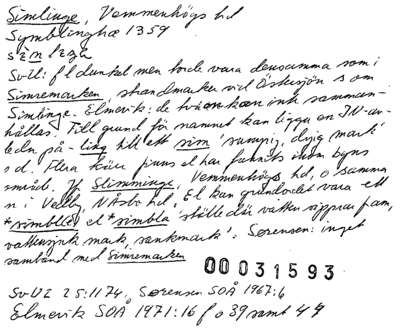 Simlinge, Vemmenhögs hd
Symblinghæ 1359
sɛmlɛga
SvU: f l dunkel men torde vara densamma som i
Simremarken strandmarken vid Östersjön som
Simlinge. Elmevik: de två kan ink samman-
hållas. Till grund för namnet kan ligga en IN-av-
ledn på -ling till ett sim 'sumpig, dyig mark'
o d. Flera kärr finns el har funnits inom byns
område. Jf Slimminge, Vemmenhögs hd, o samma
n i Vellby, V Åsbo hd. El kan grundordet vara ett
*simblo el *simbla 'ställe där vatten sipprar fram,
vattensjuk mark, sankmark'. Sørensen: inget
samband med Simremarken
00031593
SvU2 25:1174, Sørensen SOÅ 1967:6
Elmevik SOÅ 1971:16 f o 39 samt 49